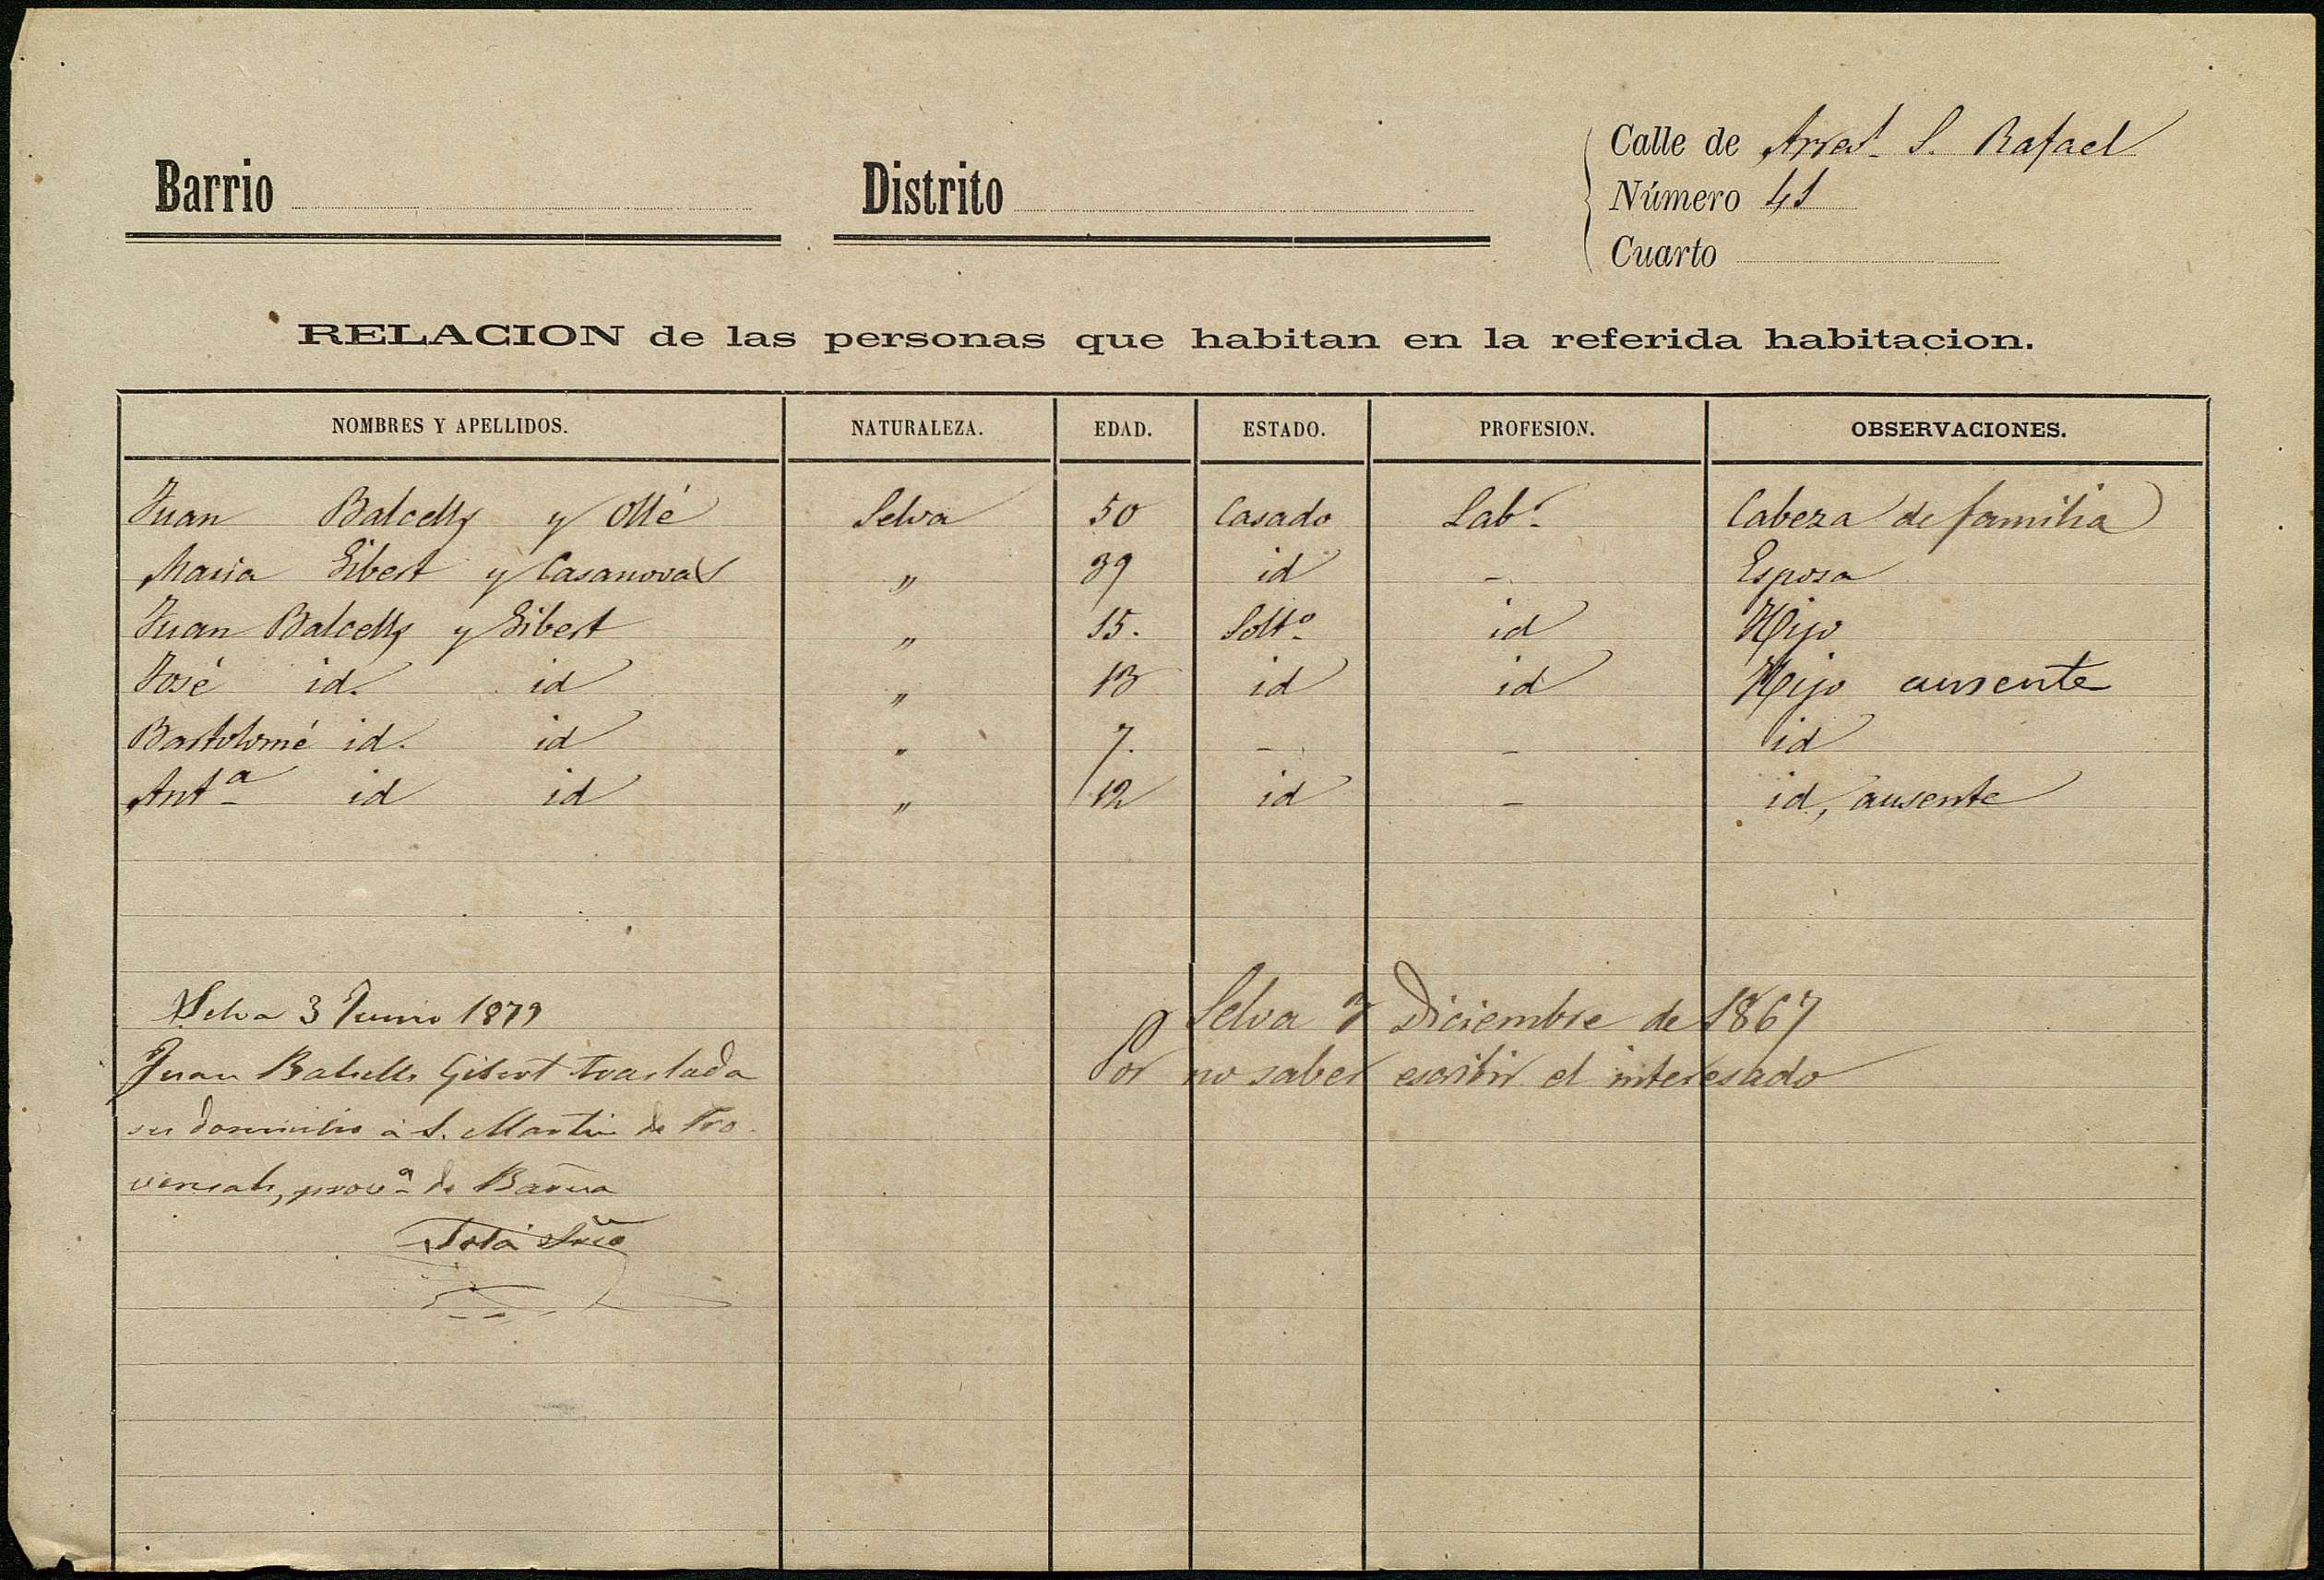 Barrio
Distrito
Calle de Arral. S. Rafael
Número 41
Cuarto
RELACION de las personas que habitan en la referida habitacion.
NOMBRES Y APELLIDOS. NATURALEZA. EDAD. ESTADO. PROFESION. OBSERVACIONES.
Juan Balcells y Ollé Selva 50 Casado Lab.r Cabeza de familia
Maria Gibert y Casanovas " 39 id - Esposa
Juan Balcells y Gibert " 15. Solt.o id Hijo
José id. id " 13 id id Hijo ausente
Bartolomé id. id " 7. - - id
Ant.a id id " 12 id - id, ausente
Selva 3 Junio 1879
Juan Balcells Gibert traslada
su domicilio á S. Martin de Pro
vensals, prov.a de Barna
Selva 7 Diciembre de 1867
Por no saber escribir el interesado